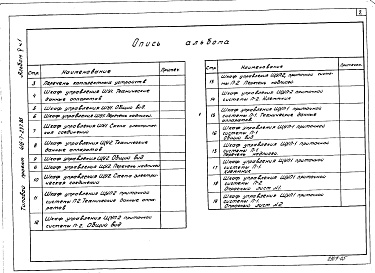 3
Опись альбома
Альбом 9 ч.1
Типовой проект 416-7-
Стр.
Наименование
Примеч.
3 Перечень комплектных устройств
4 Шкаф управления ШУ1. Технические
данные аппаратов
5 Шкаф управления ШУ1. Общий вид
6 Шкаф управления ШУ1. Перечень надписей.
7 Шкаф управления ШУ1. Схема электричес-
кая соединений
8 Шкаф управления ШУ2. Технические
данные аппаратов
9 Шкаф управления ШУ2. Общий вид
9 Шкаф управления ШУ2. Перечень надписей
10 Шкаф управления ШУ2. Схема электри-
ческая соединений
11 Шкаф управления ЩУП2 приточной
системы П-2. Технические данные аппа-
ратов
12 Шкаф управления ЩУП2 приточной
системы П-2. Общий вид
Стр.
Наименование
Примечан.
13 Шкаф управления ЩУП2 приточной систе-
мы П-2. Перечень надписей
14 Шкаф управления ЩУП2 приточной
системы П-2. Клеммник
15 Шкаф управления ЩУП-1 приточной
системы П-1. Технические данные
аппаратов
16 Шкаф управления ЩУП-1 приточной
системы П-1.
Общий вид
Шкаф управления ЩУП-1 приточной
системы П-1
Перечень надписей
17 Шкаф управления ЩУП1 приточной
системы П-1
Клеммник
18 Шкаф управления ЩУП1 приточной
системы П-2
Опросный лист №1
19 Шкаф управления ЩУП1 приточной
системы П-1.
Опросный лист №2